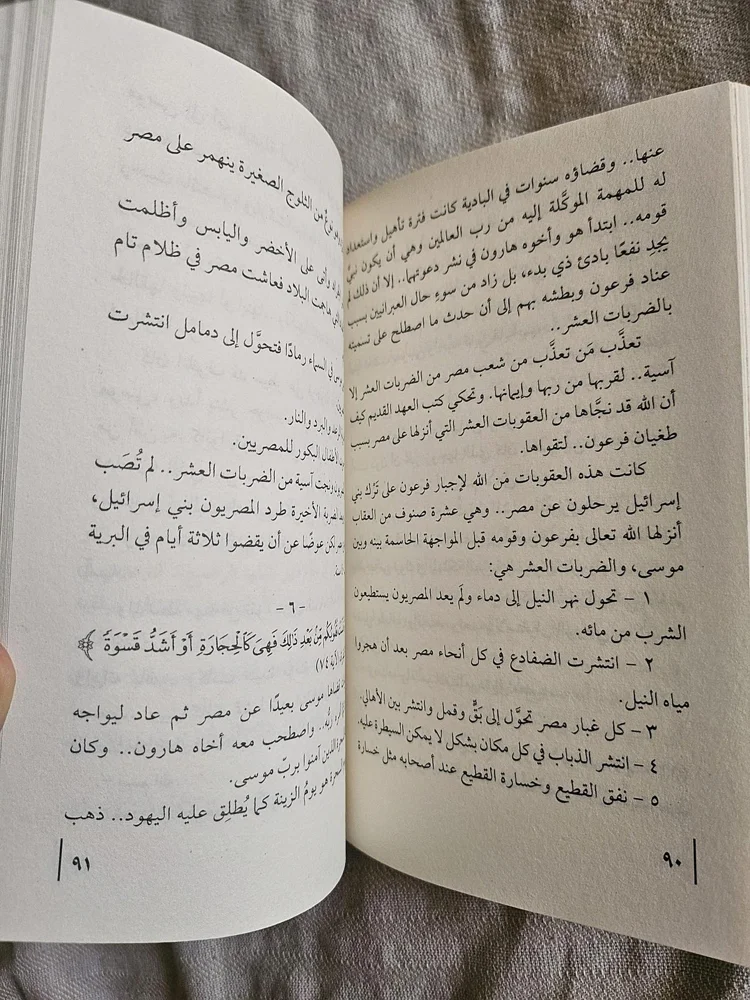 عنها.. وقضاؤه سنوات في البادية كانت فترة تأهيل واستعداد
له للمهمة الموكَّلة إليه من رب العالمين وهي أن يكون نبيَّ
قومه.. ابتدأ هو وأخوه هارون في نشر دعوتهما.. إلا أن ذلك لم
يجدِ نفعًا بادئ ذي بدء، بل زاد من سوءِ حال العبرانيين بسبب
عناد فرعون وبطشه بهم إلى أن حدث ما اصطلح على تسميته
بالضربات العشر..
تعذَّب مَن تعذَّب من شعب مصر من الضربات العشر إلا
آسية.. لقربها من ربها وإيمانها. وتحكي كتب العهد القديم كيف
أن الله قد نجَّاها من العقوبات العشر التي أنزلها على مصر بسبب
طغيان فرعون.. لتقواها.
كانت هذه العقوبات مَن الله لإجبار فرعون على تَرْك بني
إسرائيل يرحلون عن مصر.. وهي عشرة صنوف من العقاب
أنزلها الله تعالى بفرعون وقومه قبل المواجهة الحاسمة بينه وبين
موسى، والضربات العشر هي:
١ - تحول نهر النيل إلى دماء ولَم يعد المصريون يستطيعون
الشرب من مائه.
٢ - انتشرت الضفادع في كل أنحاء مصر بعد أن هجروا
مياه النيل.
٣ - كل غبار مصر تحوَّل إلى بَقٍّ وقمل وانتشر بين الأهالي.
٤ - انتشر الذباب في كل مكان بشكل لا يمكن السيطرة عليه.
٥ - نفق القطيع وخسارة القطيع عند أصحابه مثل خسارة
٩٠
نوعٌ من الثلوج الصغيرة ينهمر على مصر
وأتى على الأخضر واليابس وأظلمت
هاجمت البلاد فعاشت مصر في ظلام تام
موسى في السماء رمادًا فتحوَّل إلى دمامل انتشرت
والبرد والنار.
الأطفال البكور للمصريين.
ونجت آسية من الضربات العشر.. لم تُصَب
الضربة الأخيرة طرد المصريون بني إسرائيل،
لكن عوضًا عن أن يقضوا ثلاثة أيام في البرية
-٦-
قُلُوبُكُم مِّنۢ بَعْدِ ذَٰلِكَ فَهِىَ كَٱلْحِجَارَةِ أَوْ أَشَدُّ قَسْوَةً ﴾
الآية ٧٤)
قضاها موسى بعيدًا عن مصر ثم عاد ليواجه
ربُّه.. واصطحب معه أخاه هارون.. وكان
الذين آمنوا بربّ موسى.
هو يومُ الزينة كما يُطلِق عليه اليهود.. ذهب
٩١